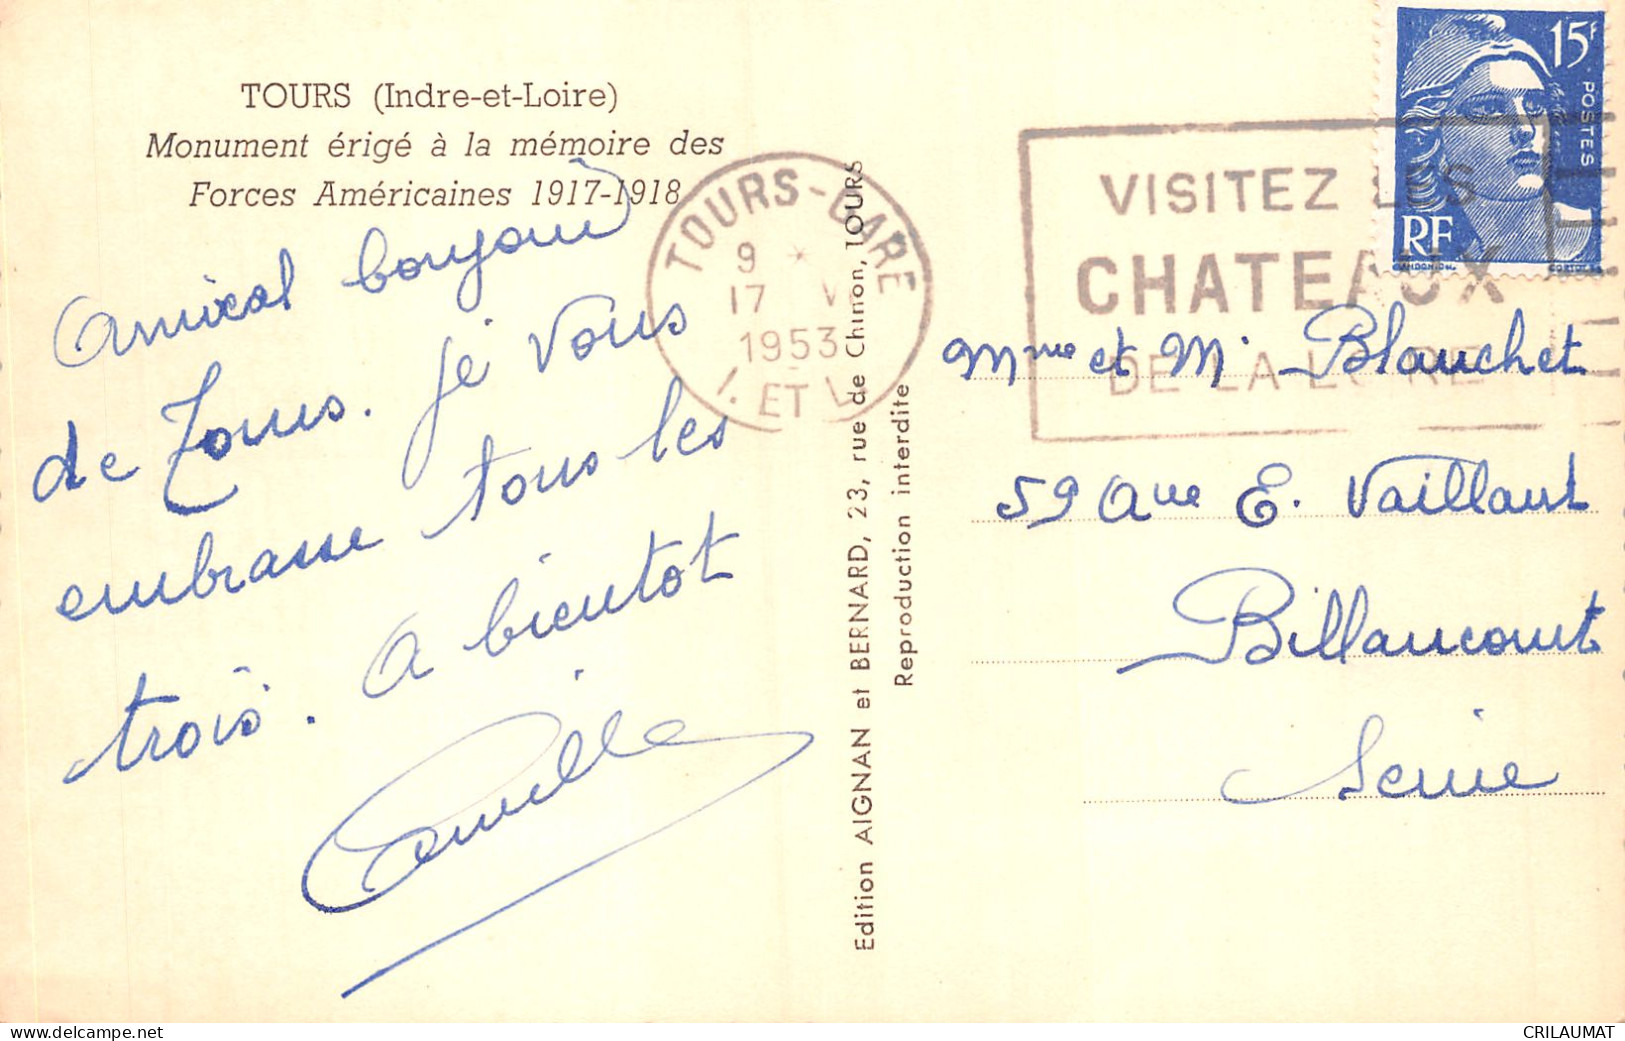 TOURS (Indre-et-Loire)
Monument érigé à la mémoire des
Forces Américaines 1917-1918
Amical bonjour
de Tours. Je vous
embrasse tous les
trois. A bientot
Camille
Edition AIGNAN et BERNARD, 23, rue de Chinon, TOURS
Reproduction interdite
TOURS-GARE
9 *
17 V
1953
I. ET L.
VISITEZ LES
CHATEAUX
DE LA LOIRE
15F
POSTES
RF
GANDON
Mme et M. Blanchet
59 Aue E. Vaillant
Billancourt
Seine
www.delcampe.net
CRILAUMAT